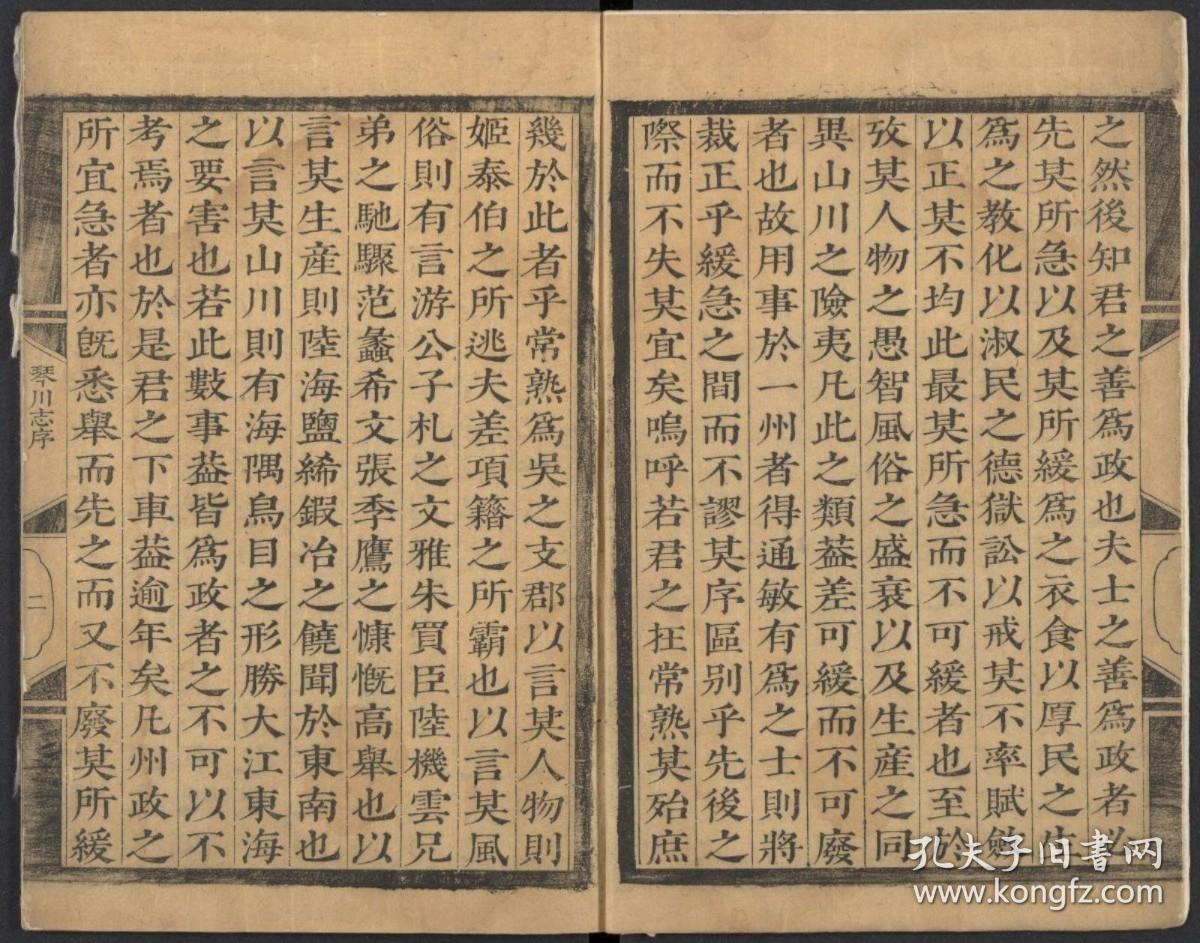 之然後知君之善爲政也夫士之善爲政者必
先其所急以及其所緩爲之衣食以厚民之生
爲之教化以淑民之德獄訟以戒其不率賦斂
以正其不均此最其所急而不可緩者也至於
攷其人物之愚智風俗之盛衰以及生産之同
異山川之險夷凡此之類葢差可緩而不可廢
者也故用事於一州者得通敏有爲之士則將
裁正乎緩急之間而不謬其序區别乎先後之
際而不失其宜矣嗚呼若君之在常熟其殆庶
幾於此者乎常熟爲吳之支郡以言其人物則
姬泰伯之所逃夫差項籍之所霸也以言其風
俗則有言游公子札之文雅朱買臣陸機雲兄
弟之馳驟范蠡希文張季鷹之慷慨高舉也以
言其生産則陸海鹽絺鍜冶之饒聞於東南也
以言其山川則有海隅烏目之形勝大江東海
之要害也若此數事葢皆爲政者之不可以不
考焉者也於是君之下車葢逾年矣凡州政之
所宜急者亦旣悉舉而先之而又不廢其所緩
琴川志序
二
孔夫子旧书网
www.kongfz.com